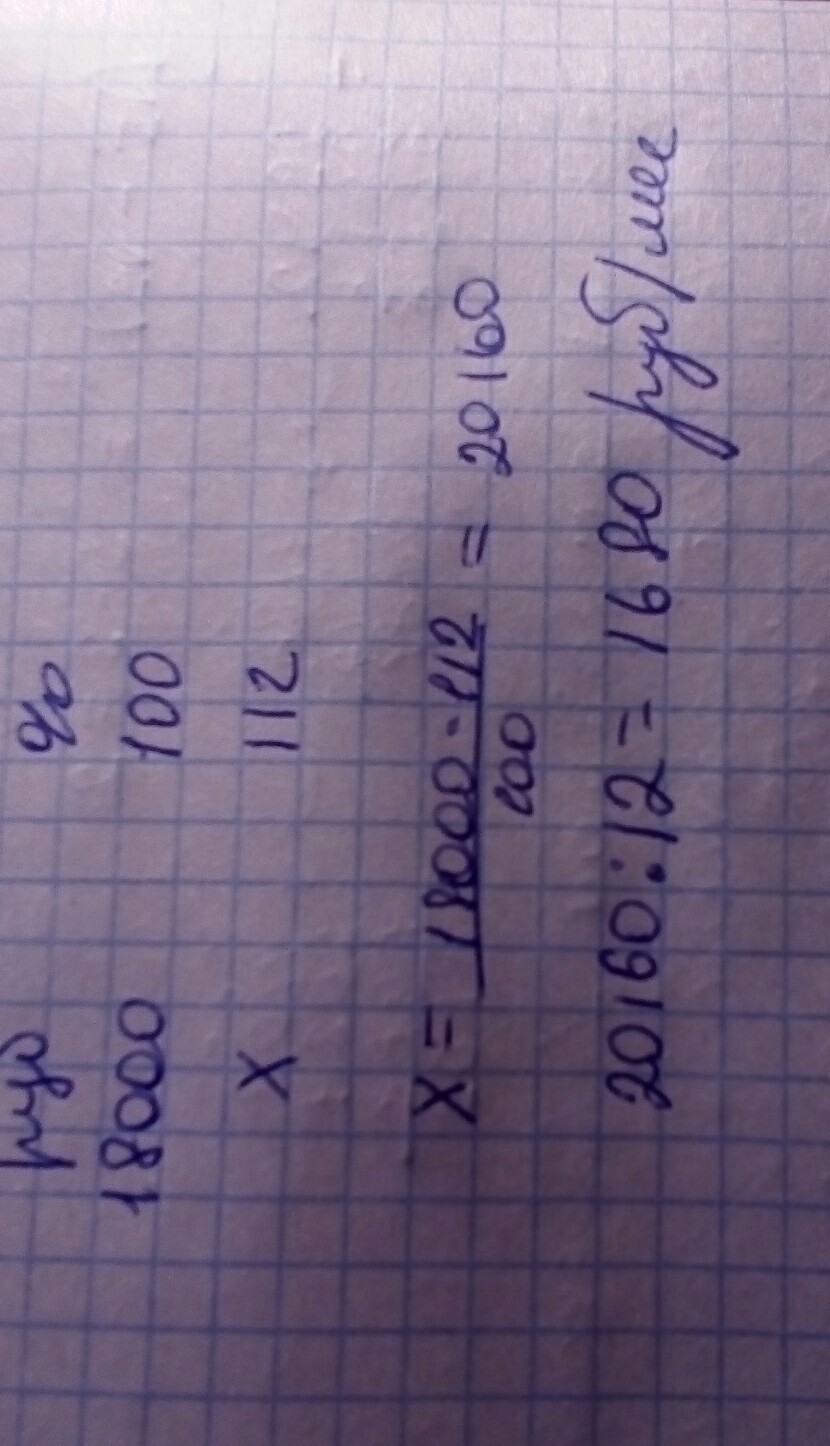 руб %
18000 100
X 112
X = 18000 · 112 / 100 = 20160
20160 : 12 = 1680 руб/мес